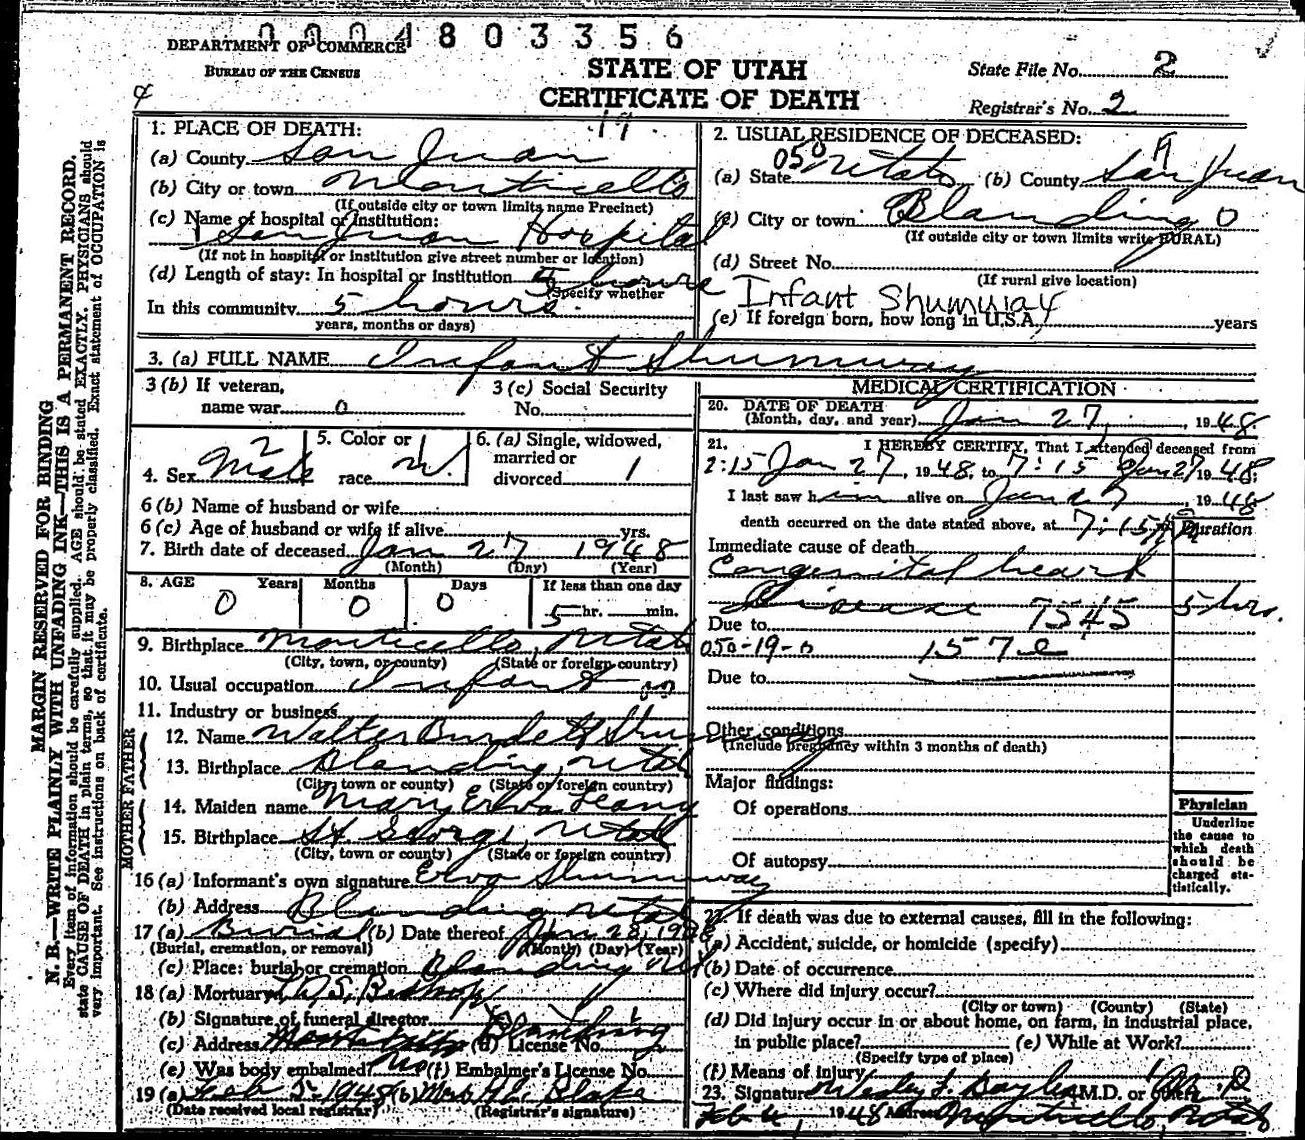 0004803356
DEPARTMENT OF COMMERCE
BUREAU OF THE CENSUS
STATE OF UTAH
CERTIFICATE OF DEATH
State File No. 2
Registrar's No. 2
4
19
MARGIN RESERVED FOR BINDING
N. B.—WRITE PLAINLY WITH UNFADING INK—THIS IS A PERMANENT RECORD.
Every item of information should be carefully supplied. AGE should be stated EXACTLY. PHYSICIANS should
state CAUSE OF DEATH in plain terms, so that it may be properly classified. Exact statement of OCCUPATION is
very important. See instructions on back of certificate.
1. PLACE OF DEATH:
(a) County San Juan
(b) City or town Monticello
(If outside city or town limits name Precinct)
(c) Name of hospital or institution:
San Juan Hospital
(If not in hospital or institution give street number or location)
(d) Length of stay: In hospital or institution 5 hours
(Specify whether
In this community 5 hours
years, months or days)
2. USUAL RESIDENCE OF DECEASED:
050
(a) State Utah (b) County San Juan
(c) City or town Blanding 0
(If outside city or town limits write RURAL)
(d) Street No.
(If rural give location)
Infant Shumway
(e) If foreign born, how long in U.S.A. years
3. (a) FULL NAME Infant Shumway
3 (b) If veteran,
name war 0
3 (c) Social Security
No.
4. Sex Male 2
5. Color or
race W.
6. (a) Single, widowed,
married or
divorced 1
6 (b) Name of husband or wife
6 (c) Age of husband or wife if alive yrs.
7. Birth date of deceased Jan 27 1948
(Month) (Day) (Year)
8. AGE Years Months Days If less than one day
0 0 0 5 hr. min.
9. Birthplace Monticello, Utah
(City, town, or county) (State or foreign country)
10. Usual occupation Infant
11. Industry or business
FATHER
12. Name Walter Burdett Shumway
13. Birthplace Blanding, Utah
(City, town or county) (State or foreign country)
MOTHER
14. Maiden name Mary Elva Leany
15. Birthplace St. George, Utah
(City, town or county) (State or foreign country)
16 (a) Informant's own signature Elva Shumway
(b) Address Blanding Utah
17 (a) Burial (b) Date thereof Jan 28, 1948
(Burial, cremation, or removal) (Month) (Day) (Year)
(c) Place: burial or cremation Blanding Ut
18 (a) Mortuary L.D.S. Bishop
(b) Signature of funeral director
(c) Address Monticello Blanding (d) License No.
(e) Was body embalmed? No (f) Embalmer's License No.
19 (a) Feb 5-1948 (b) Blake
(Date received local registrar) (Registrar's signature)
MEDICAL CERTIFICATION
20. DATE OF DEATH
(Month, day, and year) Jan 27, 1948
21. I HEREBY CERTIFY, That I attended deceased from
2:15 Jan 27, 1948, to 7:15 Jan 27 1948;
I last saw him alive on Jan 27, 1948
death occurred on the date stated above, at 7:15
Duration
Immediate cause of death
Congenital heart
Disease 7545 5 hrs.
Due to
050-19-0 157e
Due to
Other conditions
(Include pregnancy within 3 months of death)
Major findings:
Of operations
Of autopsy
Physician
Underline
the cause to
which death
should be
charged sta-
tistically.
22. If death was due to external causes, fill in the following:
(a) Accident, suicide, or homicide (specify)
(b) Date of occurrence
(c) Where did injury occur?
(City or town) (County) (State)
(d) Did injury occur in or about home, on farm, in industrial place,
in public place? (e) While at Work?
(Specify type of place)
(f) Means of injury
23. Signature Wesley F. Bayles M.D. or other
Feb 4, 1948 Address Monticello, Utah